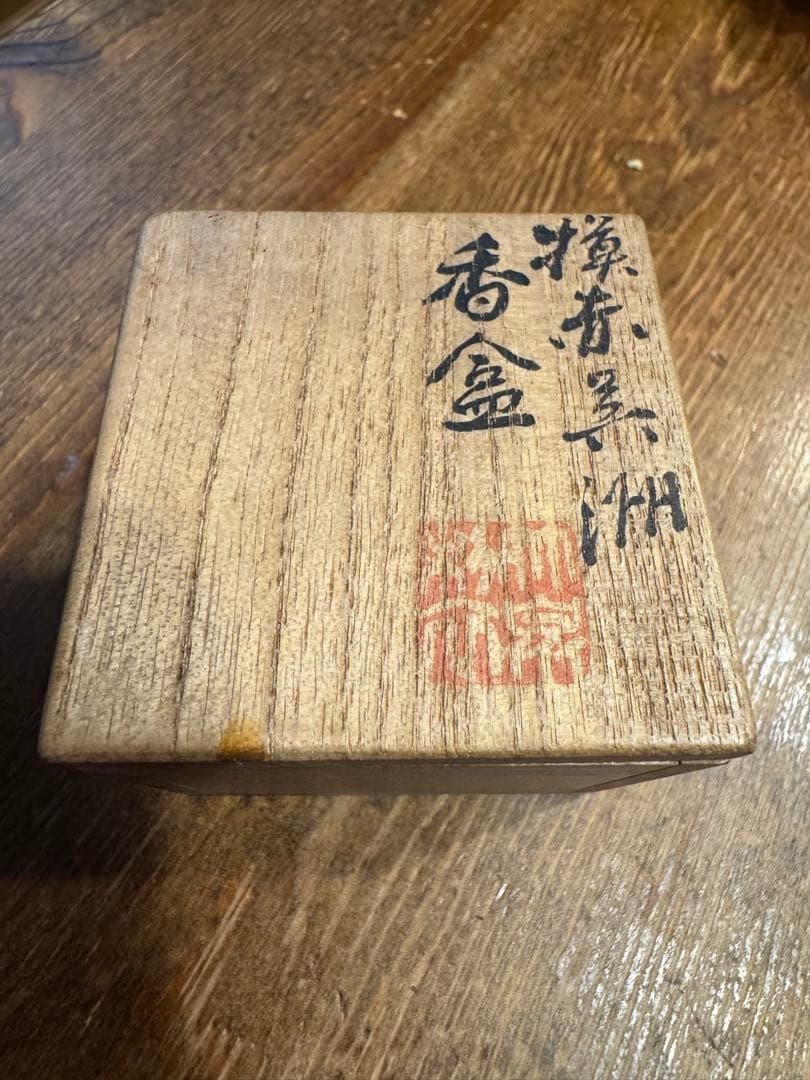 模赤呉洲
香盒